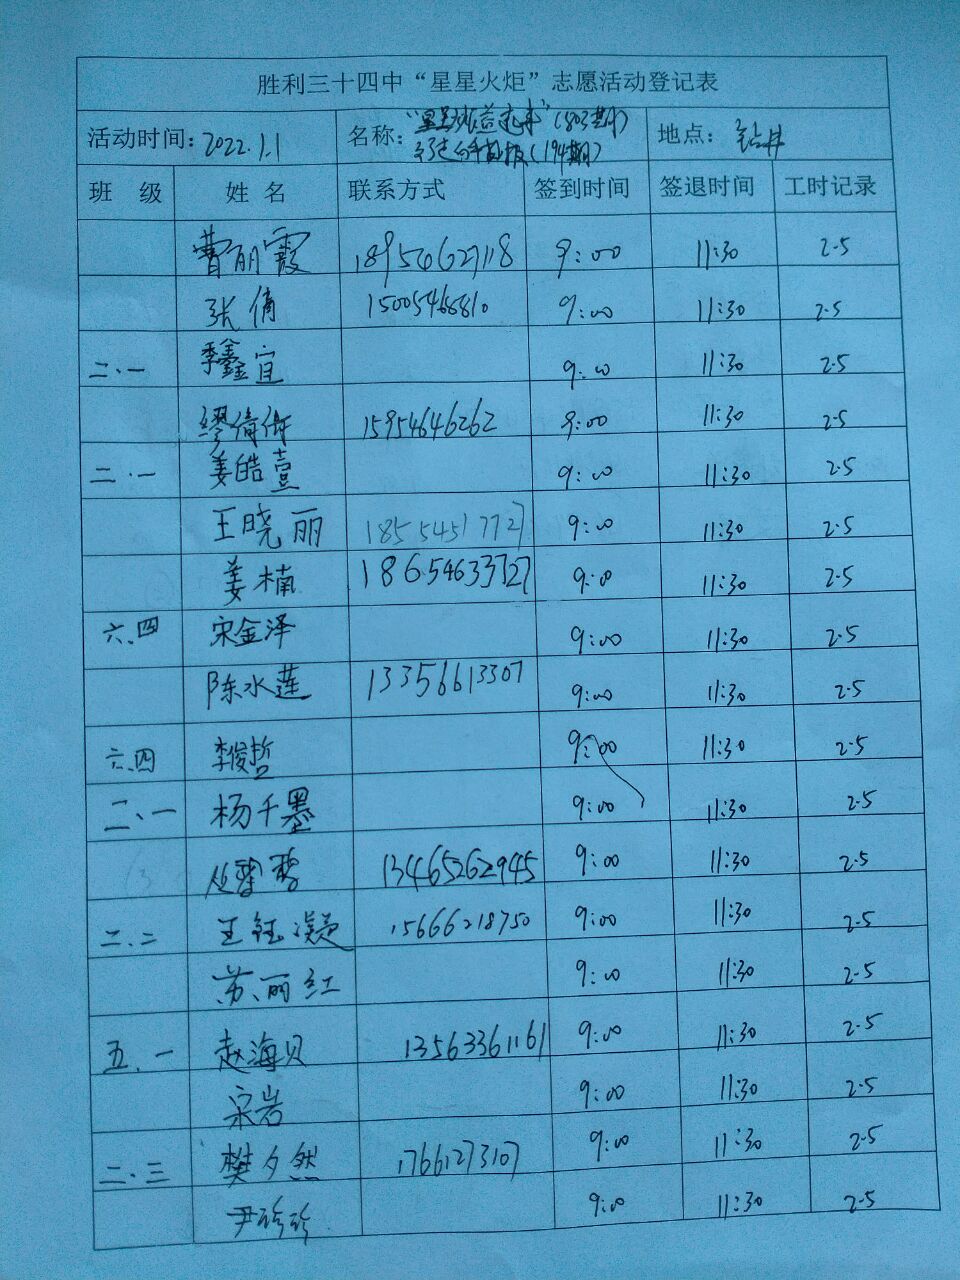 胜利三十四中“星星火炬”志愿活动登记表
活动时间: 2022.1.1 名称: (803期) (194期) 地点: 钻井
班 级 姓 名 联系方式 签到时间 签退时间 工时记录
曹丽霞 18954627118 9:00 11:30 2.5
张倩 15005468810 9:00 11:30 2.5
二.一 季鑫宜 9:00 11:30 2.5
缪倩倩 15954646262 9:00 11:30 2.5
二.一 姜皓壹 9:00 11:30 2.5
王晓丽 18554517727 9:00 11:30 2.5
姜楠 18654633727 9:00 11:30 2.5
六.四 宋金泽 9:00 11:30 2.5
陈水莲 13356613307 9:00 11:30 2.5
六.四 李俊哲 9:00 11:30 2.5
二、一 杨千墨 9:00 11:30 2.5
13465262945 9:00 11:30 2.5
二.二 王钰凝 15666218750 9:00 11:30 2.5
苏丽红 9:00 11:30 2.5
五.一 赵海贝 13563361161 9:00 11:30 2.5
宋岩 9:00 11:30 2.5
二.三 樊夕然 17661273107 9:00 11:30 2.5
尹珍珍 9:00 11:30 2.5